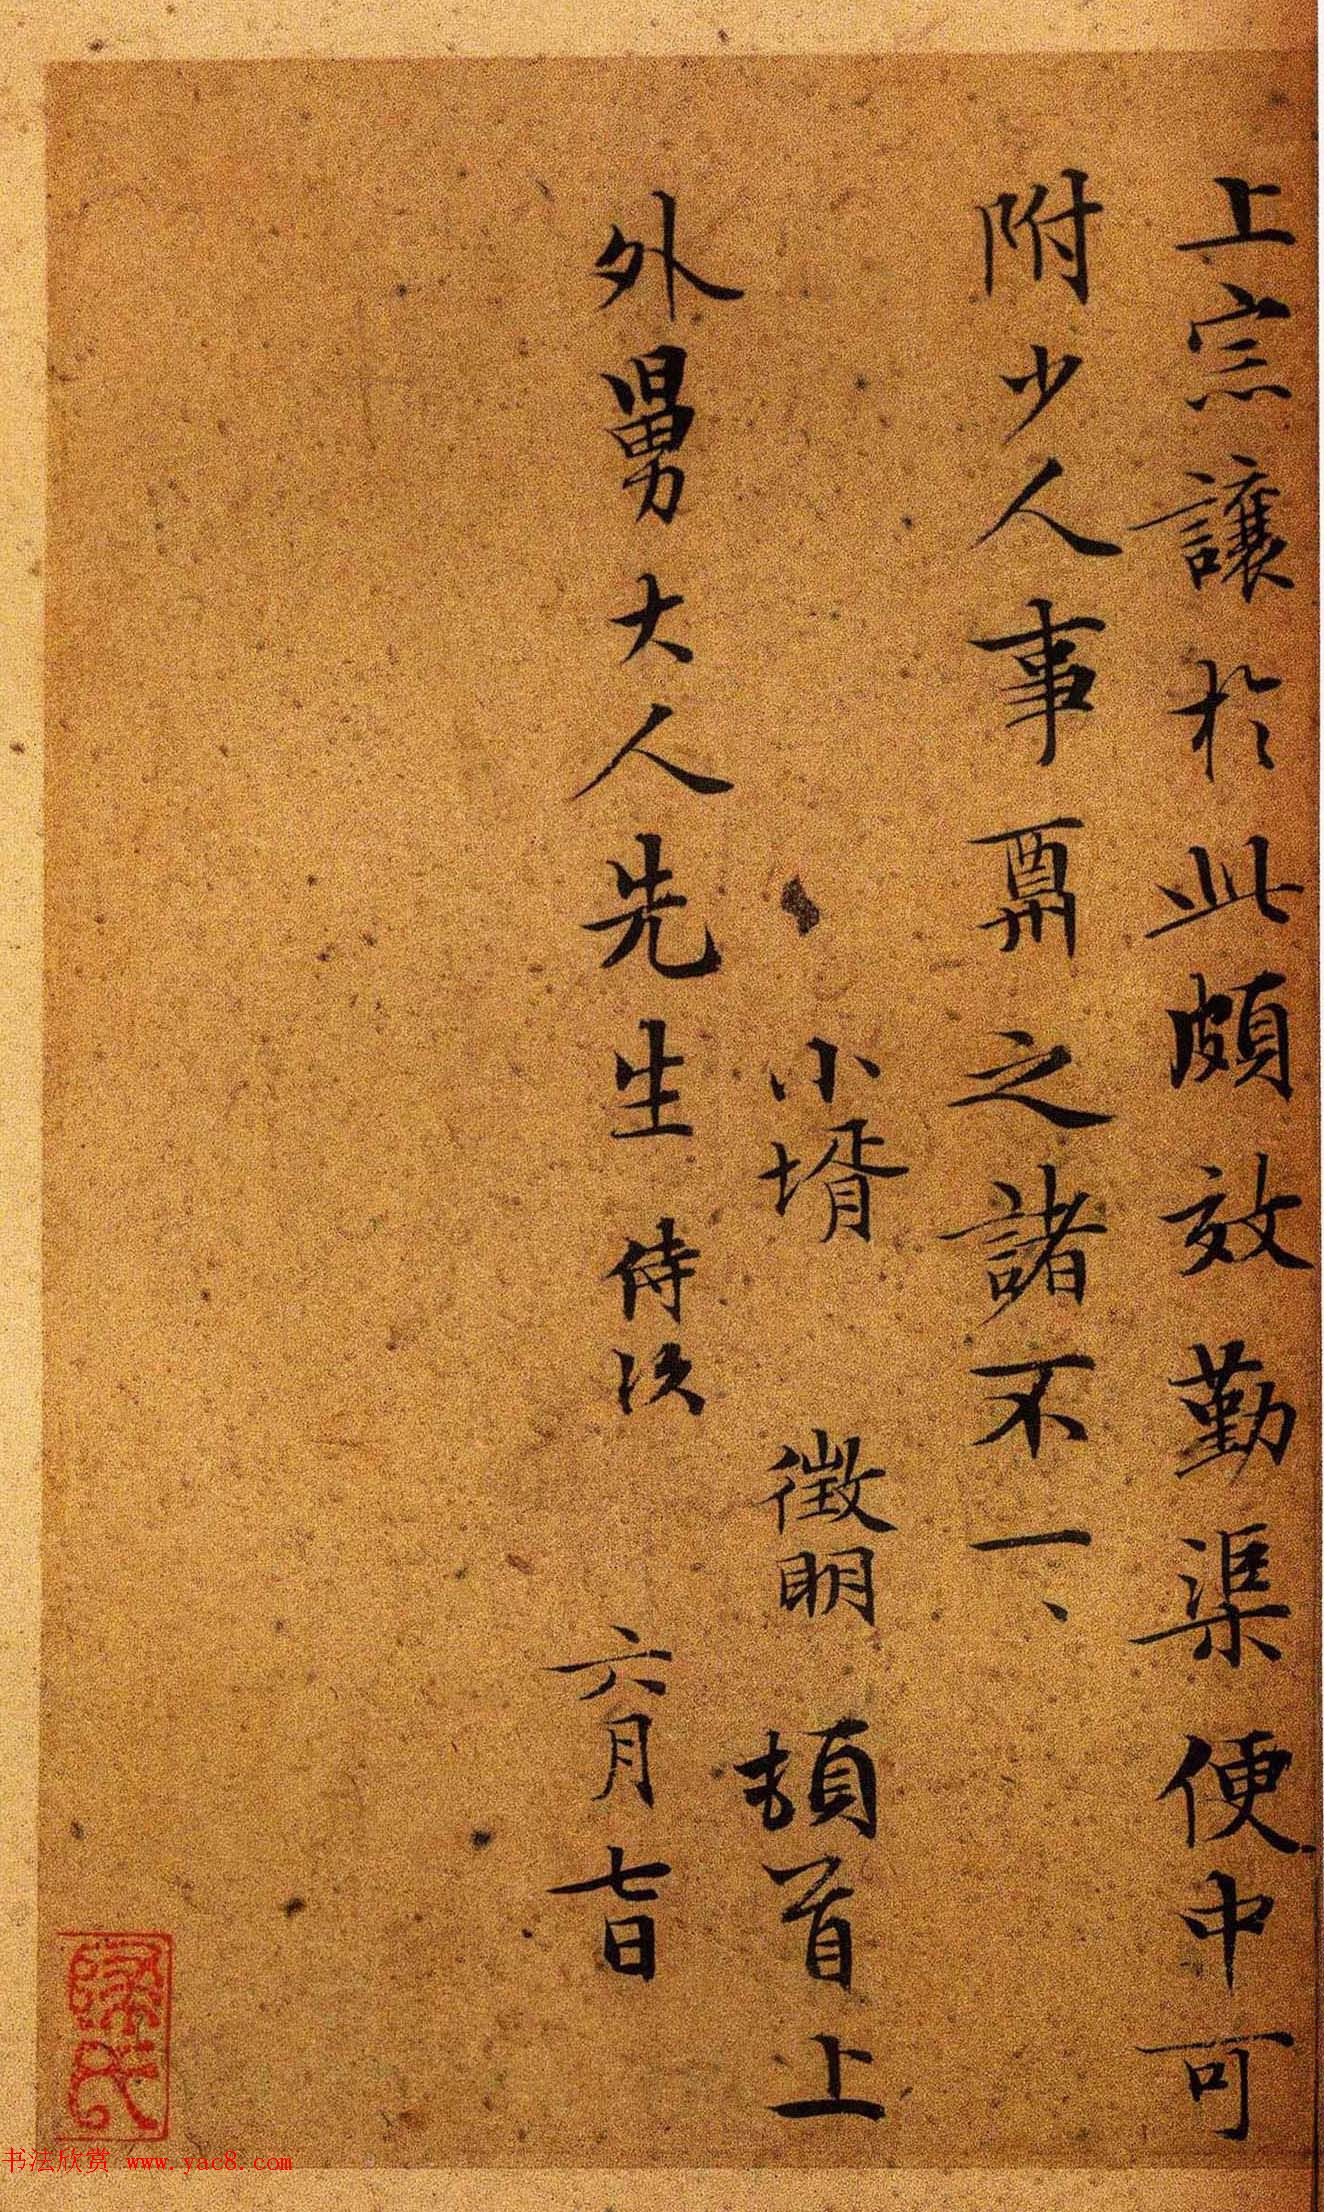 上宗讓於此頗效勤渠便中可
附少人事酬之諸不一、
小壻 徵明 頓首上
外舅大人先生 侍次 六月七日
书法欣赏 www.yac8.com